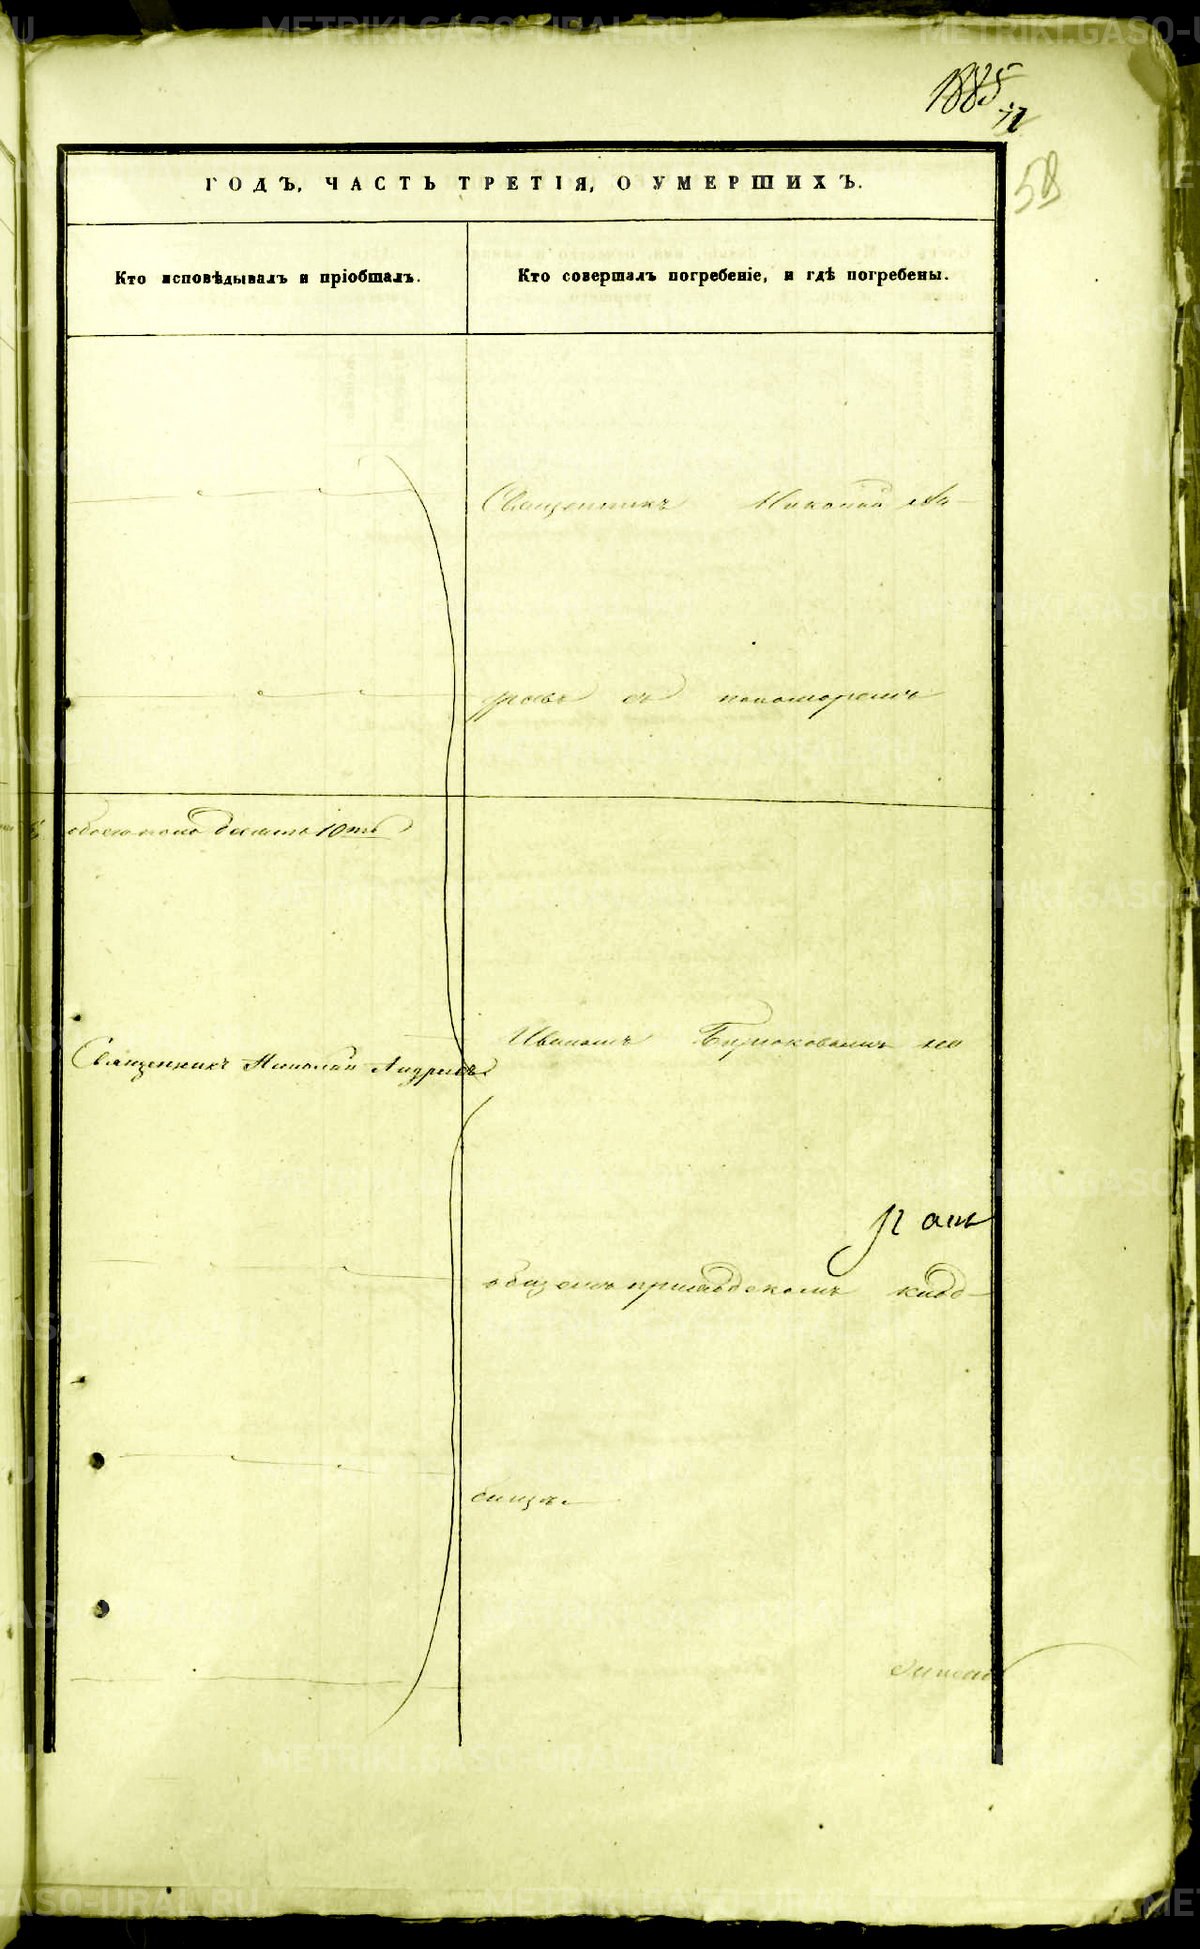 1885
58
ГОДЪ, ЧАСТЬ ТРЕТІЯ, О УМЕРШИХЪ.
Кто исповѣдывалъ и пріобщалъ.
Кто совершалъ погребеніе, и гдѣ погребены.
Священникъ Николай Ан-
дреевъ съ пономаремъ
обоего пола десять 10ть
Иваномъ Бирюковымъ на
Священникъ Николай Андреевъ
общемъ приходскомъ клад-
бищѣ.
METRIKI.GASO-URAL.RU